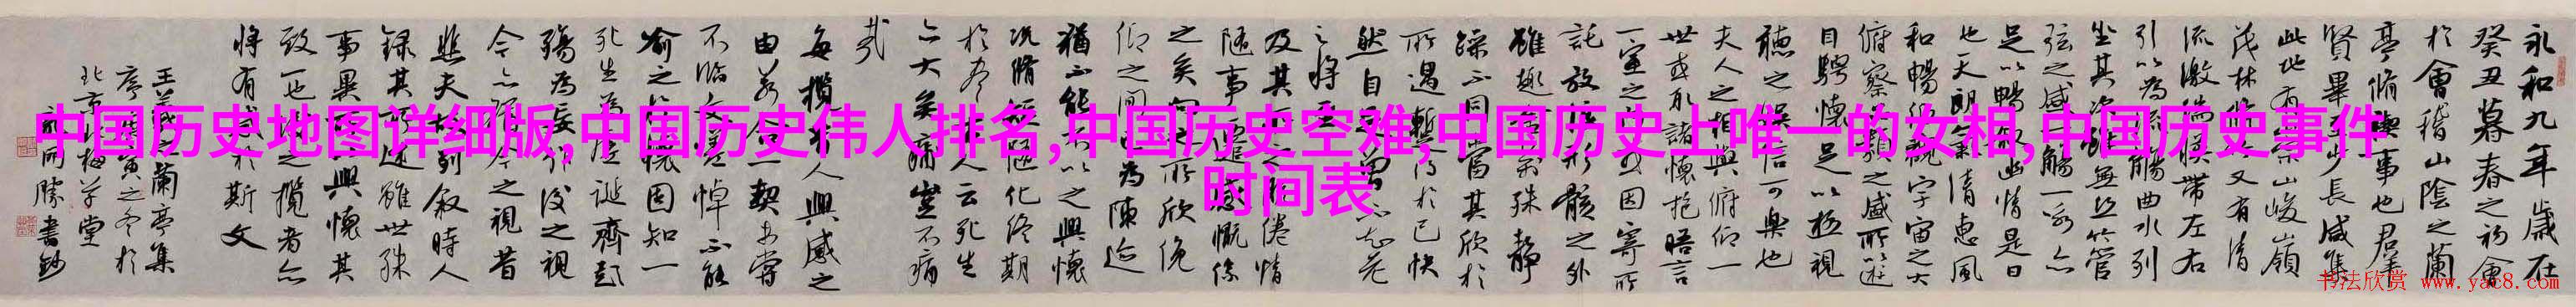 中国历史地图详细版,中国历史伟人排名,中国历史空难,中国历史上唯一的女相,中国历史事件
时间表
永和九年歲在
癸丑暮春之初會
於會稽山陰之蘭
亭脩禊事也君羣
賢畢至少長咸集
此地有崇山峻嶺
茂林脩竹又有清
流激湍暎帶左右
引以為流觴曲水列
坐其次雖無絲竹管
弦之盛一觴一詠亦
足以暢敘幽情是日
也天朗氣清惠風
和暢仰觀宇宙之大
俯察品類之盛所以遊
目騁懷足以極視
聽之娛信可樂也
夫人之相與俯仰一
世或取諸懷抱晤言
一室之內或因寄所
託放浪形骸之外
雖趣舍萬殊靜
躁不同當其欣於
所遇暫得於己快
然自足曾不知老
之將至
及其所之既倦情
隨事遷感慨係
之矣向之所欣俛
仰之間已為陳迹
猶不能不以之興懷
況脩短隨化終期
於盡古人云死生
亦大矣豈不痛
哉
每攬昔人興感之
由若合一契未嘗
不臨文嗟悼不能
喻之於懷固知一
死生為虛誕齊彭
殤為妄作後之視
今亦猶今之視昔
悲夫故列敘時人
錄其所述雖世殊
事異所以興懷其
致一也後之攬者亦
將有感於斯文
王羲之蘭亭集
序寅之冬於
北京梅草堂
勝書鈔
书法欣赏 www.yac8.com